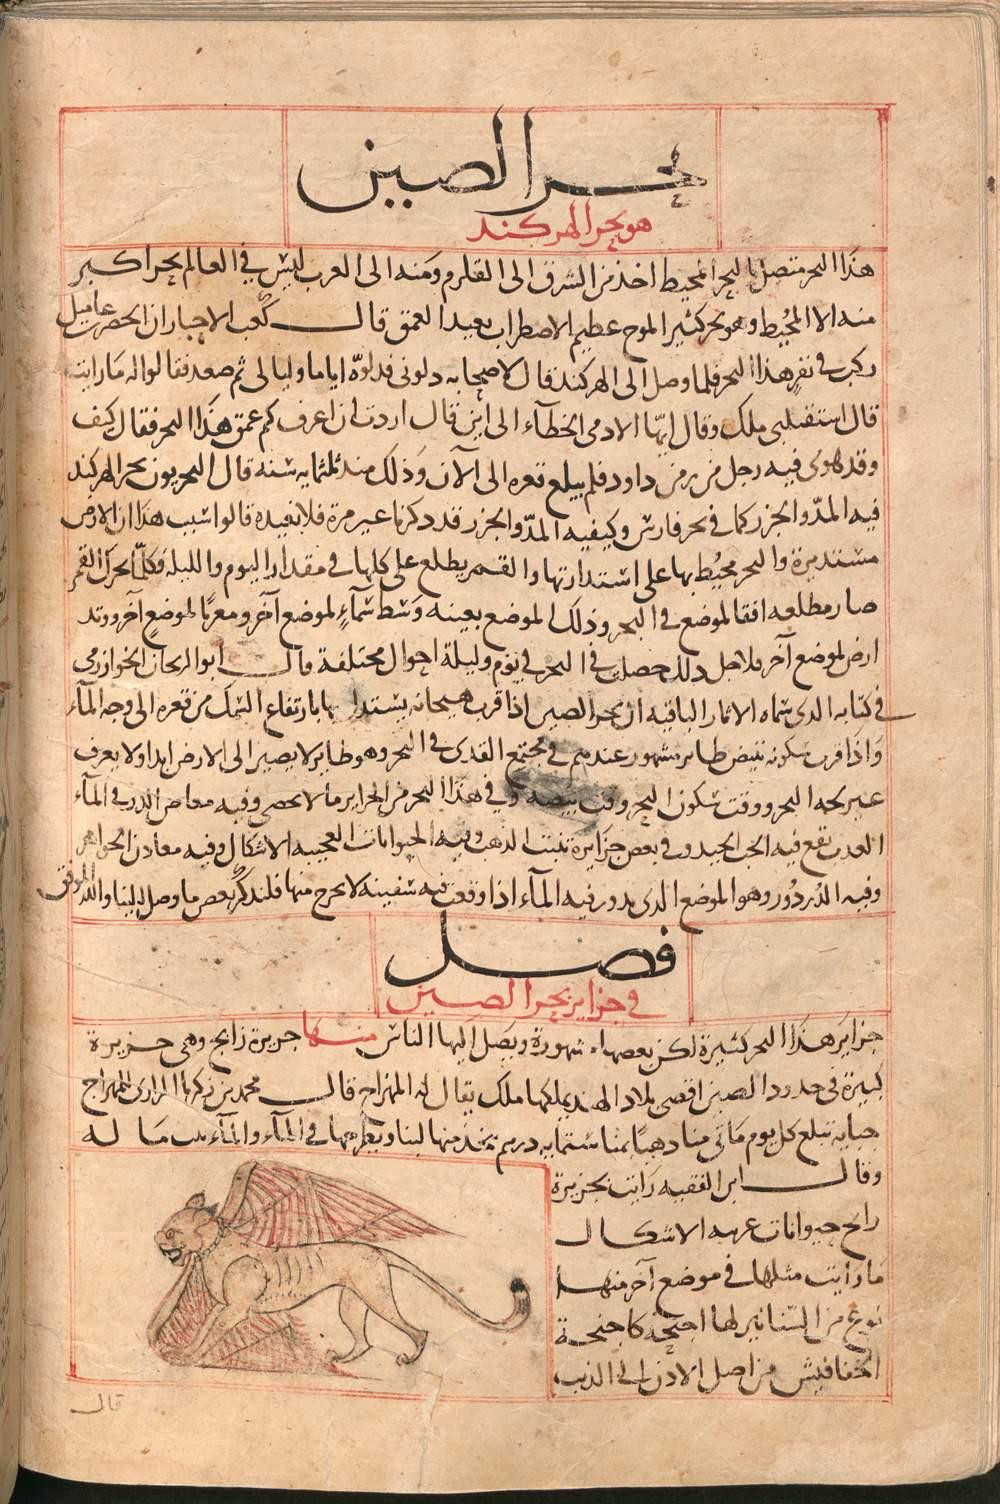 بحر الصين
هو بحر الهركند
هذا البحر متصل بالبحر المحيط اخذ من الشرق الى القلزم ومنه الى الغرب ليس في العالم بحر اكبر
منه الا المحيط وهو بحر كثير الموج عظيم الاضطراب بعيد العمق قال كعب الاحبار ان الخضر
ركب في نفر هذا البحر فلما وصل الى الهركند قال لاصحابه دلوني فدلوه اياما وليالي ثم صعد فقالوا له ما رايت
قال استقبلني ملك وقال ايها الادمي الخطآء الى اين قال اردت ان اعرف كم عمق هذا البحر فقال كيف
وقد هوى فيه رجل من زمن داود فلم يبلغ قعره الى الآن وذلك منذ ثلثمايه سنه قال البحريون بحر الهركند
فيه المد والجزر كما في بحر فارس وكيفيه المد والجزر قد ذكرنا غير مرة فلا نفيده قالوا سبب هذا ان الارض
مستديرة والبحر محيط بها على استدارتها والقمر يطلع على كلها في مقدار اليوم والليله فكلما تحرك القمر
صار مطلعه افقا لموضع في البحر وذلك الموضع بعينه وسط سمآء لموضع آخر ومغربا لموضع آخر ووتد
ارض لموضع آخر فلاجل ذلك حصل في البحر في يوم وليلة احوال مختلفة قال ابو الريحان الخوارزمي
في كتابه الذي سماه الاثار الباقيه ان بحر الصين اذا قرب هيجانه يستدل بها بارتفاع السمك من قعره الى وجه المآء
واذا قرب سكونه تبيض طاير مشهور عندهم في مجتمع القذى في البحر وهو طاير لا يصير الى الارض ابدا ولا يعرف
غير لجه البحر ووقت سكون البحر وقت بيضه وفي هذا البحر من الجزاير ما لا يحصى وفيه مغاص الدر في المآء
العذب تقع فيه الحب الجيد وفي بعض جزايره تنبت الذهب وفيه الحيوانات العجيبه الاشكال وفيه معادن الجواهر
وفيه الدردور وهو الموضع الذي يدور فيه المآء اذا وقعت فيه سفينه لا تخرج منها فلنذكر بعض ما وصل الينا والله الموفق
فصل
في جزاير بحر الصين
جزاير هذا البحر كثيرة لكن بعضها مشهورة ويصل اليها الناس منها جزيرة زانج وهي جزيرة
كبيرة في حدود الصين اقصى بلاد الهند يملكها ملك يقال له المهراج قال محمد بن زكريا الرازي للمهراج
جبايه تبلغ كل يوم ماتي منا ذهبا بمنا ستمايه درهم يتخذ منها لبنا ويطرحها في المآء والمآء بيت ماله
وقال ابن الفقيه رايت بجزيرة
زانج حيوانات غريبه الاشكال
ما رايت مثلها في موضع آخر منها
نوع من السنانير لها اجنحة كاجنحة
الخفافيش من اصل الاذن الى الذنب
قال